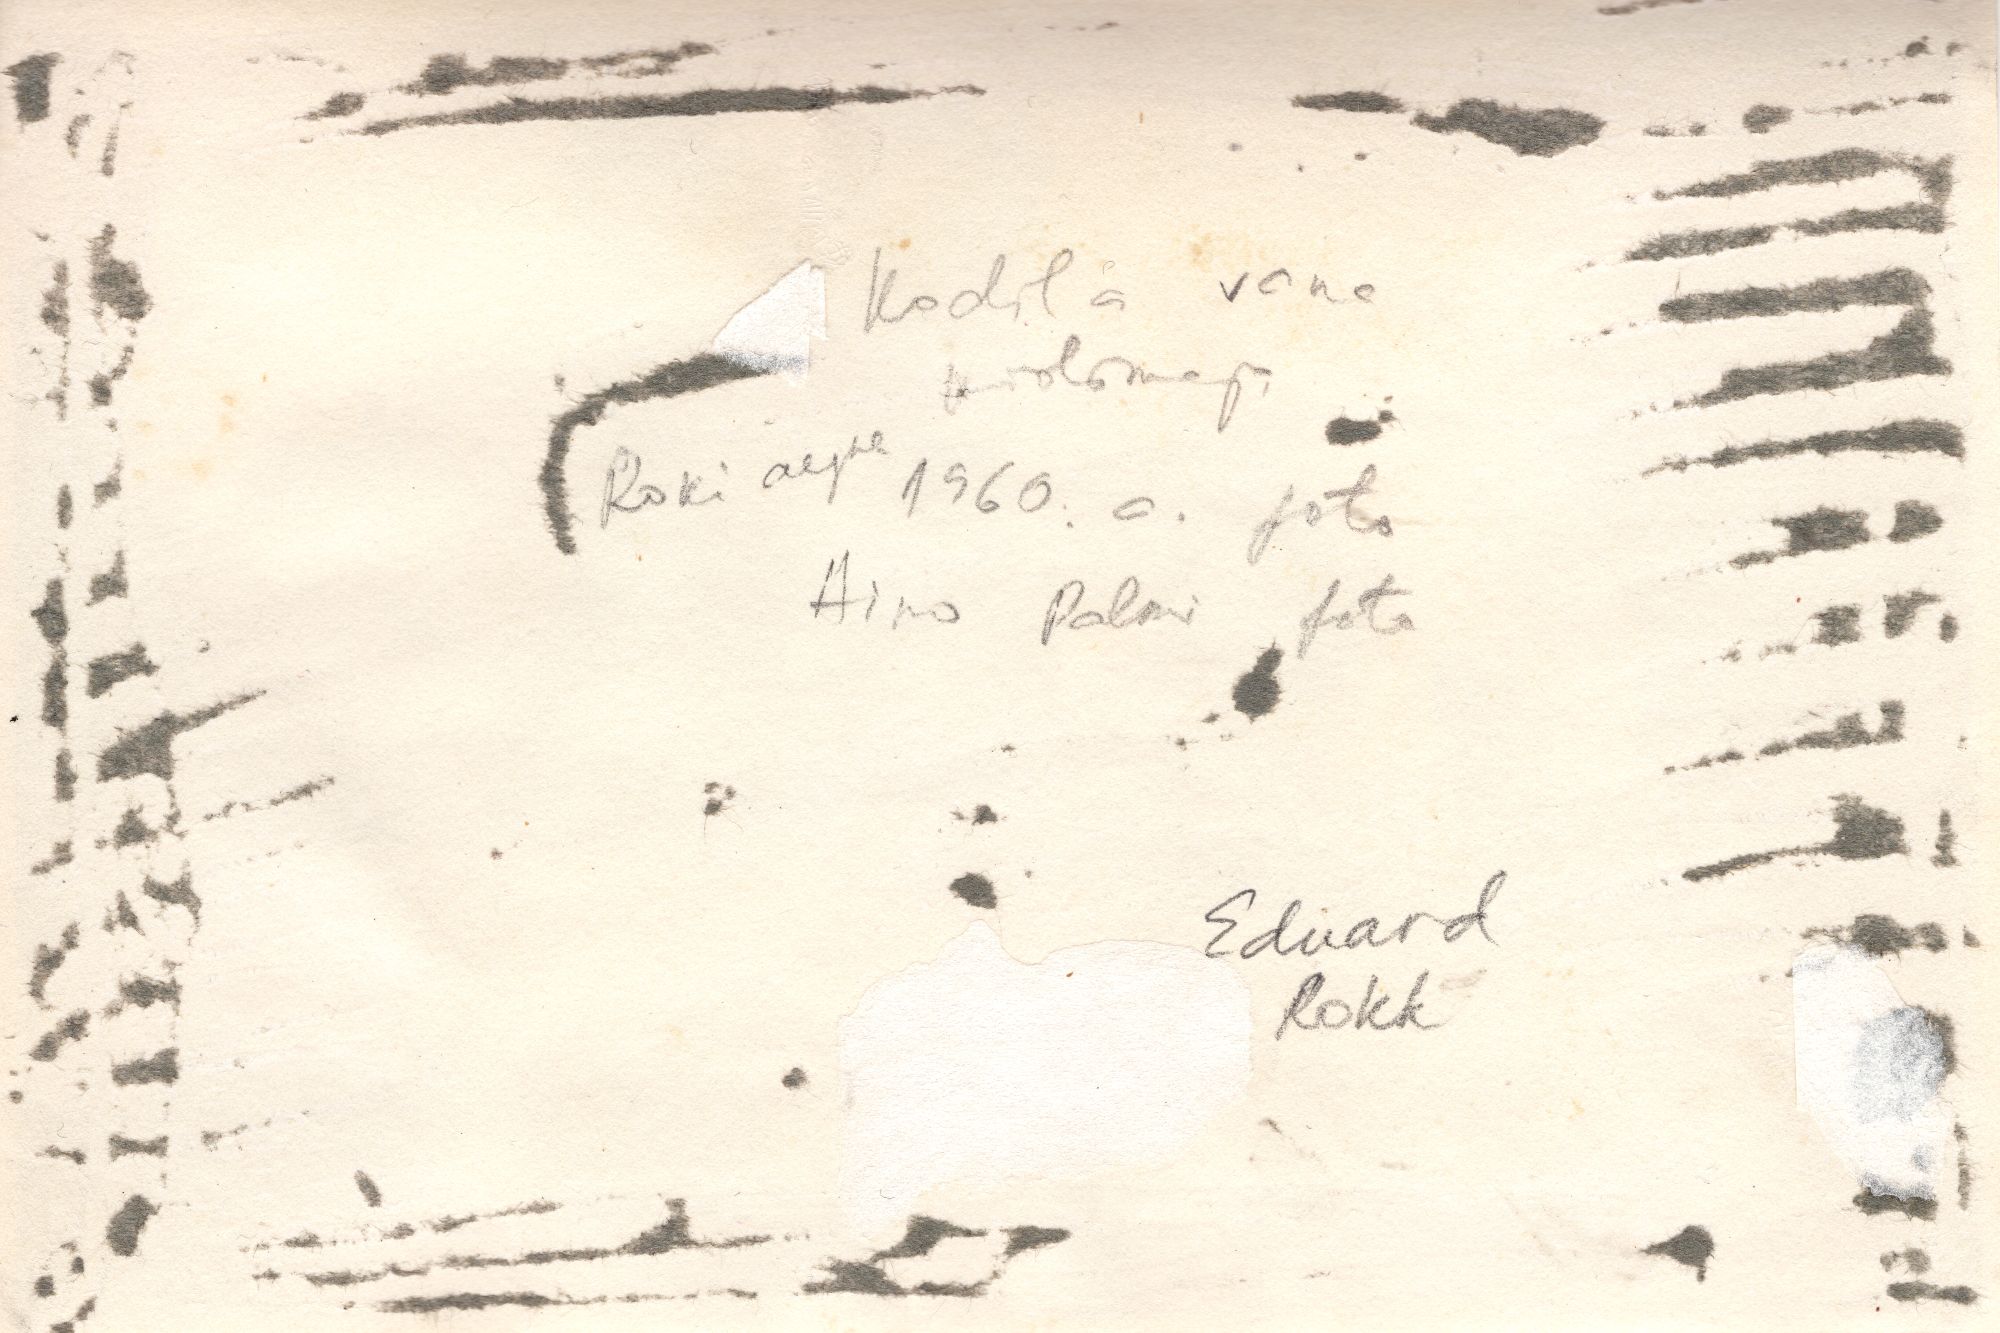 Kodila vana
Roki 1960. a. foto
Aino Palmi foto
Eduard
Rokk